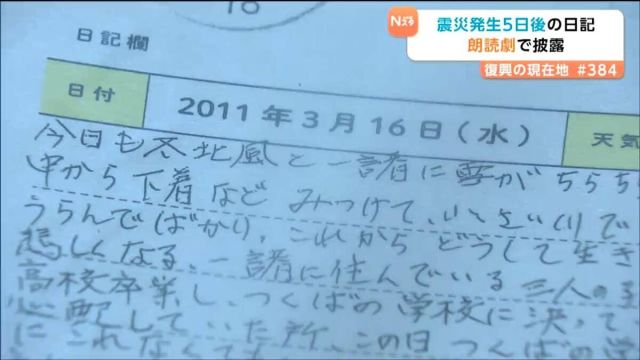 16
Nスタ
震災発生5日後の日記
朗読劇で披露
復興の現在地 #384
日記欄
日付
2011年3月16日(水)
天気
今日も冬北風と一諸に雪がちらち
中から下着など みつけて、
うらんでばかり、これから どうして生き
悲しくなる、一諸に住んでいる 三人の
高校卒業し、つくばの学校に決って
心配していた所、この日 つくばの
にこれなくても